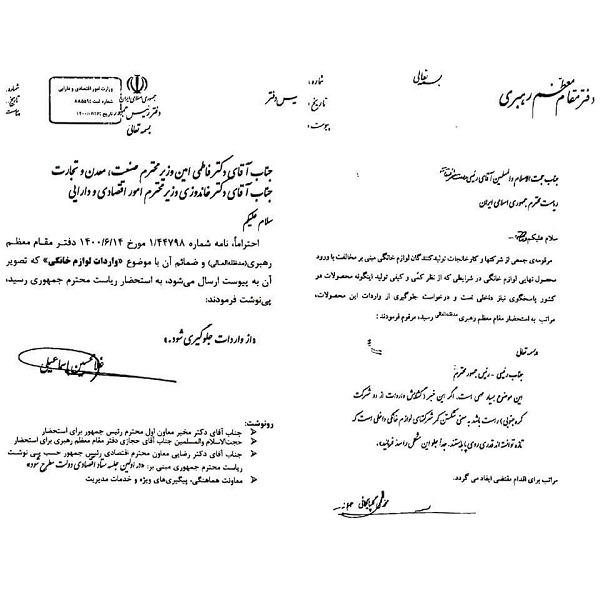 بسمه تعالی
دفتر مقام معظم رهبری
شماره:
تاریخ:
پیوست:
جناب حجت الاسلام والمسلمین آقای رئیسی
ریاست محترم جمهوری اسلامی ایران
سلام علیکم
مرقومه‌ی جمعی از شرکتها و کارخانجات تولیدکنندگان لوازم خانگی مبنی بر مخالفت با ورود
محصول نهایی لوازم خانگی در شرایطی که از نظر کمّی و کیفی تولید اینگونه محصولات در
کشور پاسخگوی نیاز داخلی است و درخواست جلوگیری از واردات این محصولات،
مراتب به استحضار مقام معظم رهبری مدظله‌العالی رسید، مرقوم فرمودند:
بسمه تعالی
جناب رئیسی - رئیس جمهور محترم
این موضوع بسیار مهمی است. اگر این خبر (گشایش واردات از دو شرکت
کره جنوبی) راست باشد به معنی شکستن کمر شرکتهای لوازم خانگی داخلی است که
تازه توانسته‌اند قدری روی پا بایستند. جداً جلو این مشکل را سد فرمائید.
مراتب برای اقدام مقتضی ایفاد می گردد.
محمد گلپایگانی
جمهوری اسلامی ایران
دفتر رئیس جمهور
بسمه تعالی
وزارت امور اقتصادی و دارایی
شماره ثبت
تاریخ
رئیس دفتر
شماره:
تاریخ:
پیوست
جناب آقای دکتر فاطمی امین وزیر محترم صنعت، معدن و تجارت
جناب آقای دکتر خاندوزی وزیر محترم امور اقتصادی و دارایی
سلام علیکم
احتراماً، نامه شماره ۱/۴۴۷۹۸ مورخ ۱۴۰۰/۶/۱۴ دفتر مقام معظم
رهبری(مدظله‌العالی) و ضمائم آن با موضوع «واردات لوازم خانگی» که تصویر
آن به پیوست ارسال می‌شود، به استحضار ریاست محترم جمهوری رسید،
پی‌نوشت فرمودند:
«از واردات جلوگیری شود.»
غلامحسین اسماعیلی
رونوشت:
جناب آقای دکتر مخبر معاون اول محترم رئیس جمهور برای استحضار
حجت‌الاسلام والمسلمین جناب آقای حجازی دفتر مقام معظم رهبری برای استحضار
جناب آقای دکتر رضایی معاون محترم اقتصادی رئیس جمهور حسب پی نوشت
ریاست محترم جمهوری مبنی بر: «در اولین جلسه ستاد اقتصادی دولت مطرح شود»
معاونت هماهنگی، پیگیری‌های ویژه و خدمات مدیریت